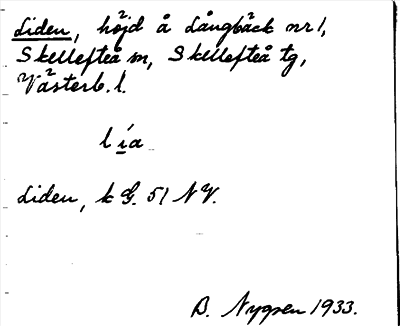 Liden, höjd å Långbäck nr 1,
Skellefteå sn, Skellefteå tg,
Västerb. l.
lia
Liden, k G. 51 NV.
B. Nygren 1933.